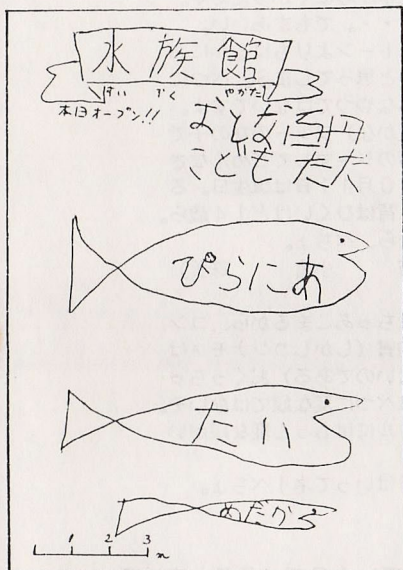 水族館
やかた
本日オープン!!
おとな百円
こども ただ
ぴらにあ
めだか
1 2 3 m